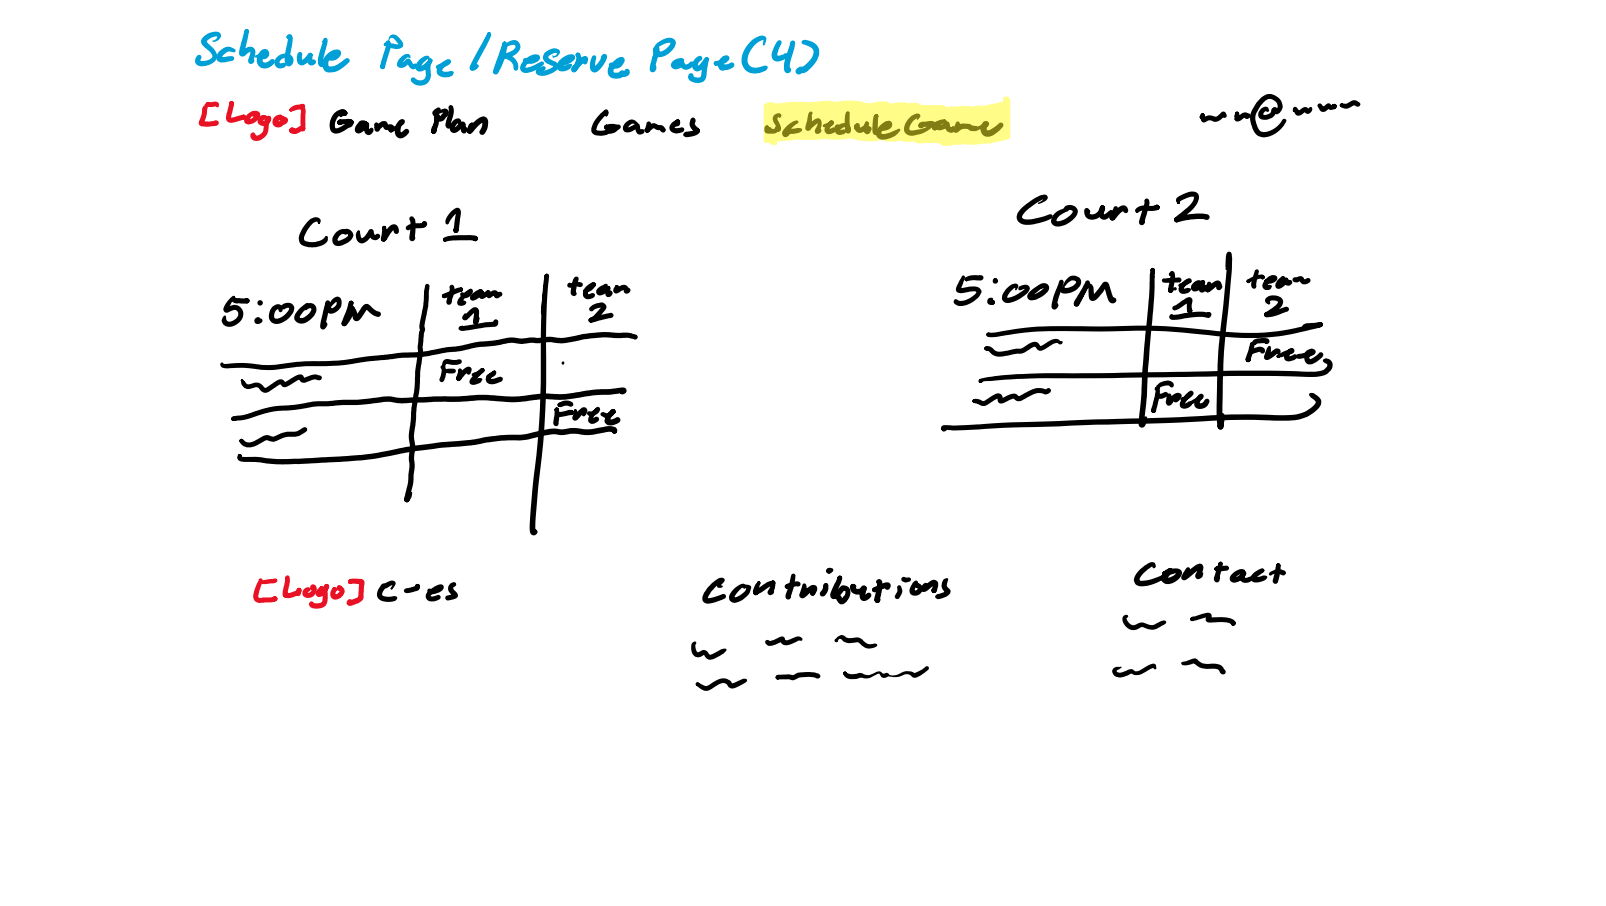 Schedule Page / Reserve Page (4)
[Logo] Game Plan Games Schedule Game @
Court 1
Court 2
5:00PM team 1 team 2
Free
Free
5:00PM team 1 team 2
Free
Free
[Logo] C-es
Contributions
Contact